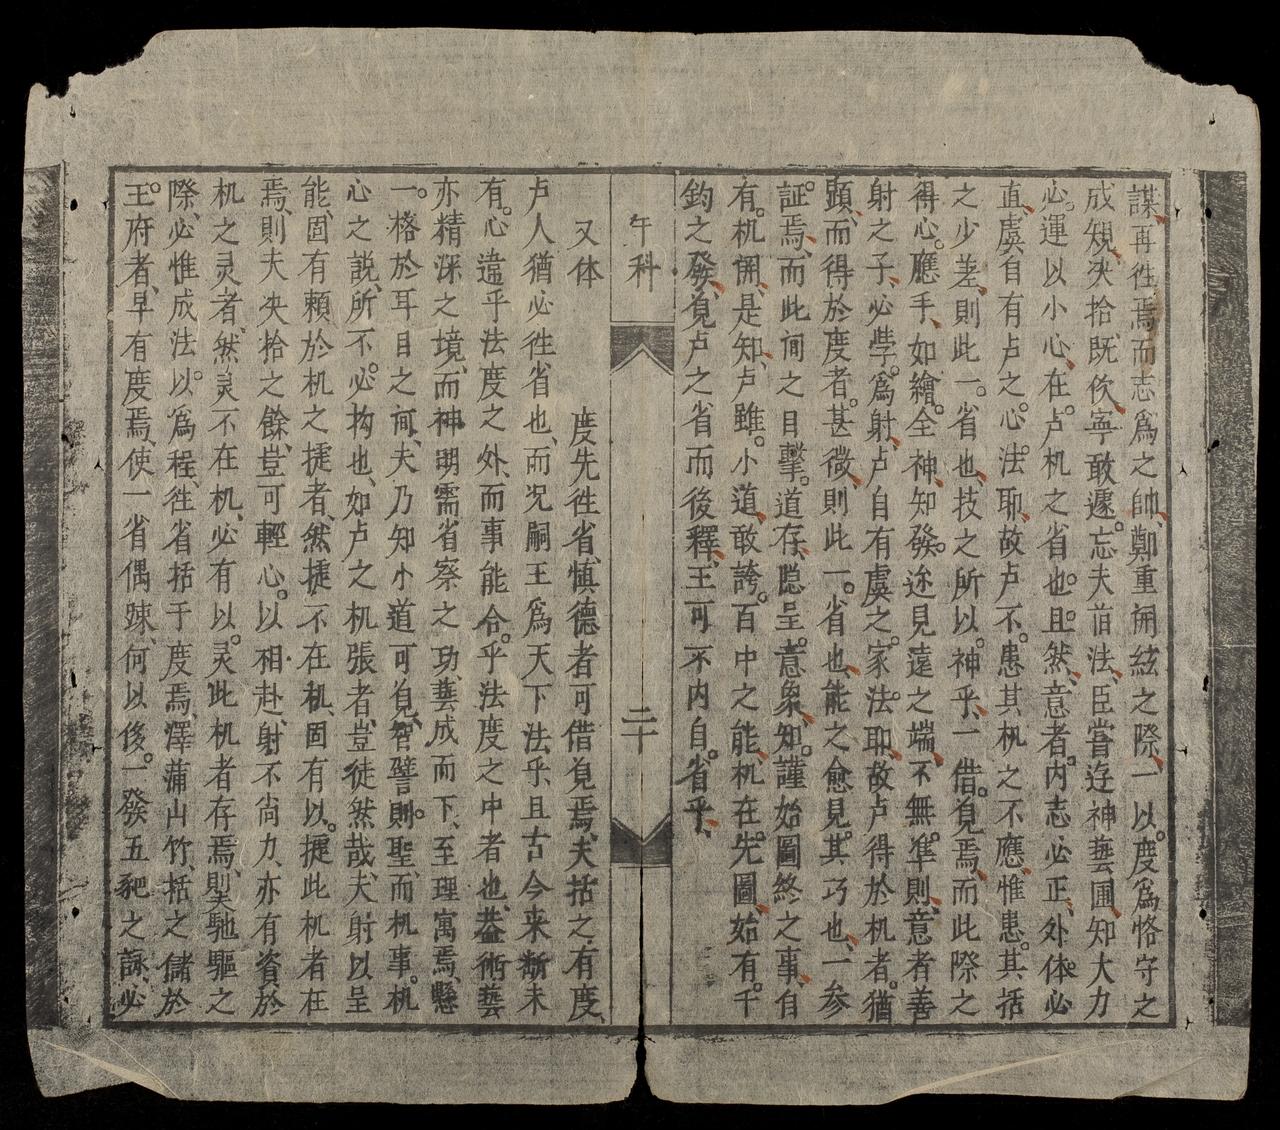 謀再徃焉而志爲之帥鄭重開絃之際一以度爲恪守之
成䂓决拾既佽寧敢遽忘夫旧法臣嘗逰神藝圃知大力
必運以小心在卢机之省也且然意者内志必正外体必
直虞自有卢之心法耶故卢不患其机之不應惟患其括
之少差則此一省也技之所以神乎一借𮗓焉而此際之
得心應手如繪全神知發迩見遠之端不無凖則意者善
射之子必學爲射卢自有虞之家法耶故卢得於机者猶
顕而得於度者甚微則此一省也能之愈見其巧也一参
証焉而此间之目擊道存隐呈意象知謹始圖終之事自
有机開是知卢雖小道敢誇百中之能机在先圖始有千
鈞之發𮗓卢之省而後釋王可不内自省乎
午科
二十
又体　度先徃省慎德者可借𮗓焉夫括之有度
卢人猶必徃省也而况嗣王爲天下法乎且古今来断未
有心違乎法度之外而事能合乎法度之中者也盖術藝
亦精深之境而神明需省察之功藝成而下至理寓焉懸
一格於耳目之间夫乃知小道可𮗓智譬則聖而机事机
心之説所不必构也如卢之机張者豈徒然哉夫射以呈
能固有頼於机之捷者然捷不在机固有以捷此机者在
焉則夫决拾之餘豈可輕心以相赴射不尚力亦有資於
机之灵者然灵不在机必有以灵此机者存焉則馳驅之
際必惟成法以爲程徃省括于度焉澤蒲山竹括之儲於
王府者早有度焉使一省偶踈何以後一發五豝之詠必